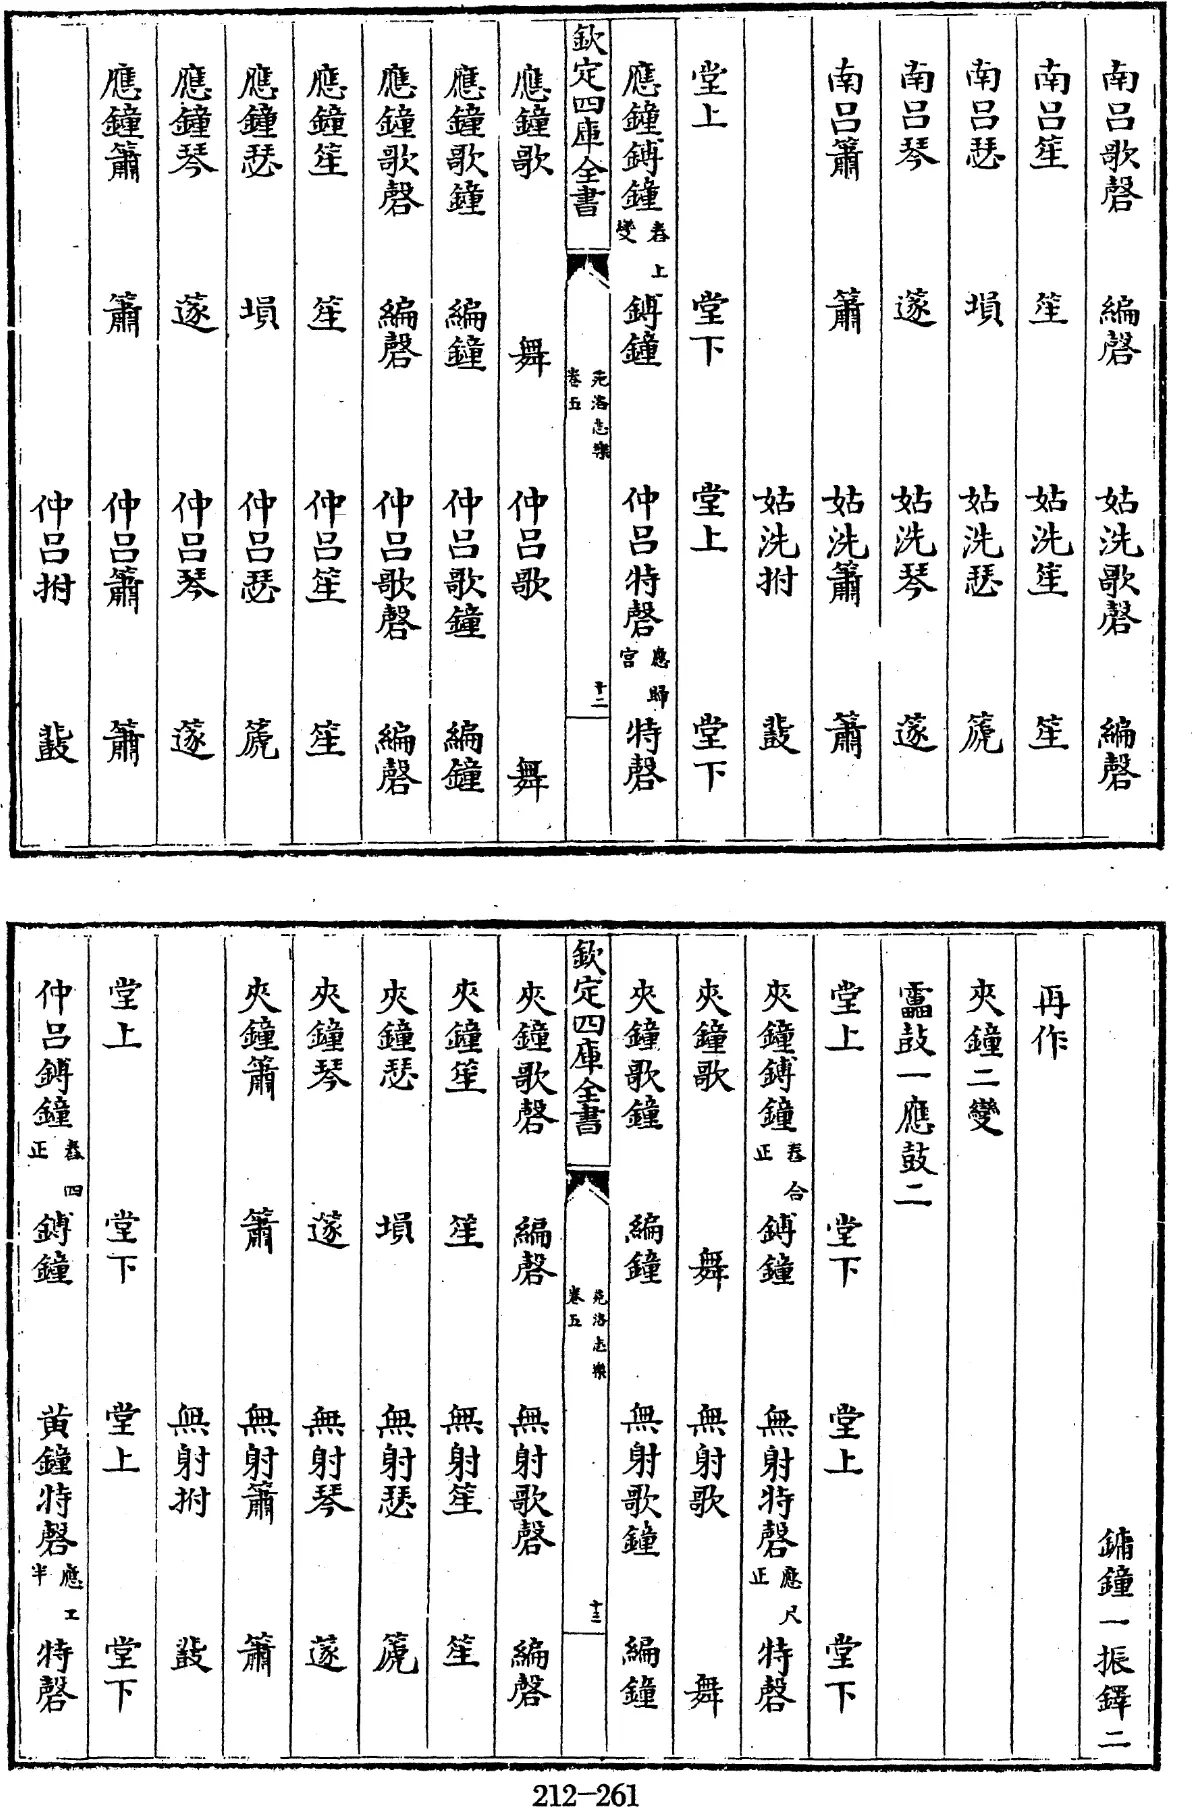 南呂歌磬 編磬 姑洗歌磬 編磬
南呂笙 笙 姑洗笙 笙
南呂瑟 塤 姑洗瑟 箎
南呂琴 篴 姑洗琴 篴
南呂簫 簫 姑洗簫 簫
姑洗拊 鼗
堂上 堂下 堂上 堂下
應鐘鎛鐘 春上變 鎛鐘 仲呂特磬 應歸宮 特磬
欽定四庫全書 苑洛志樂 卷五 十二
應鐘歌 舞 仲呂歌 舞
應鐘歌鐘 編鐘 仲呂歌鐘 編鐘
應鐘歌磬 編磬 仲呂歌磬 編磬
應鐘笙 笙 仲呂笙 笙
應鐘瑟 塤 仲呂瑟 箎
應鐘琴 篴 仲呂琴 篴
應鐘簫 簫 仲呂簫 簫
仲呂拊 鼗
鏞鐘一振鐸二
再作
夾鐘二變
靁鼓一應鼓二
堂上 堂下 堂上 堂下
夾鐘鎛鐘 春合正 鎛鐘 無射特磬 應尺正 特磬
夾鐘歌 舞 無射歌 舞
夾鐘歌鐘 編鐘 無射歌鐘 編鐘
欽定四庫全書 苑洛志樂 卷五 十三
夾鐘歌磬 編磬 無射歌磬 編磬
夾鐘笙 笙 無射笙 笙
夾鐘瑟 塤 無射瑟 箎
夾鐘琴 篴 無射琴 篴
夾鐘簫 簫 無射簫 簫
無射拊 鼗
堂上 堂下 堂上 堂下
仲呂鎛鐘 春四正 鎛鐘 黃鐘特磬 應工半 特磬
212-261